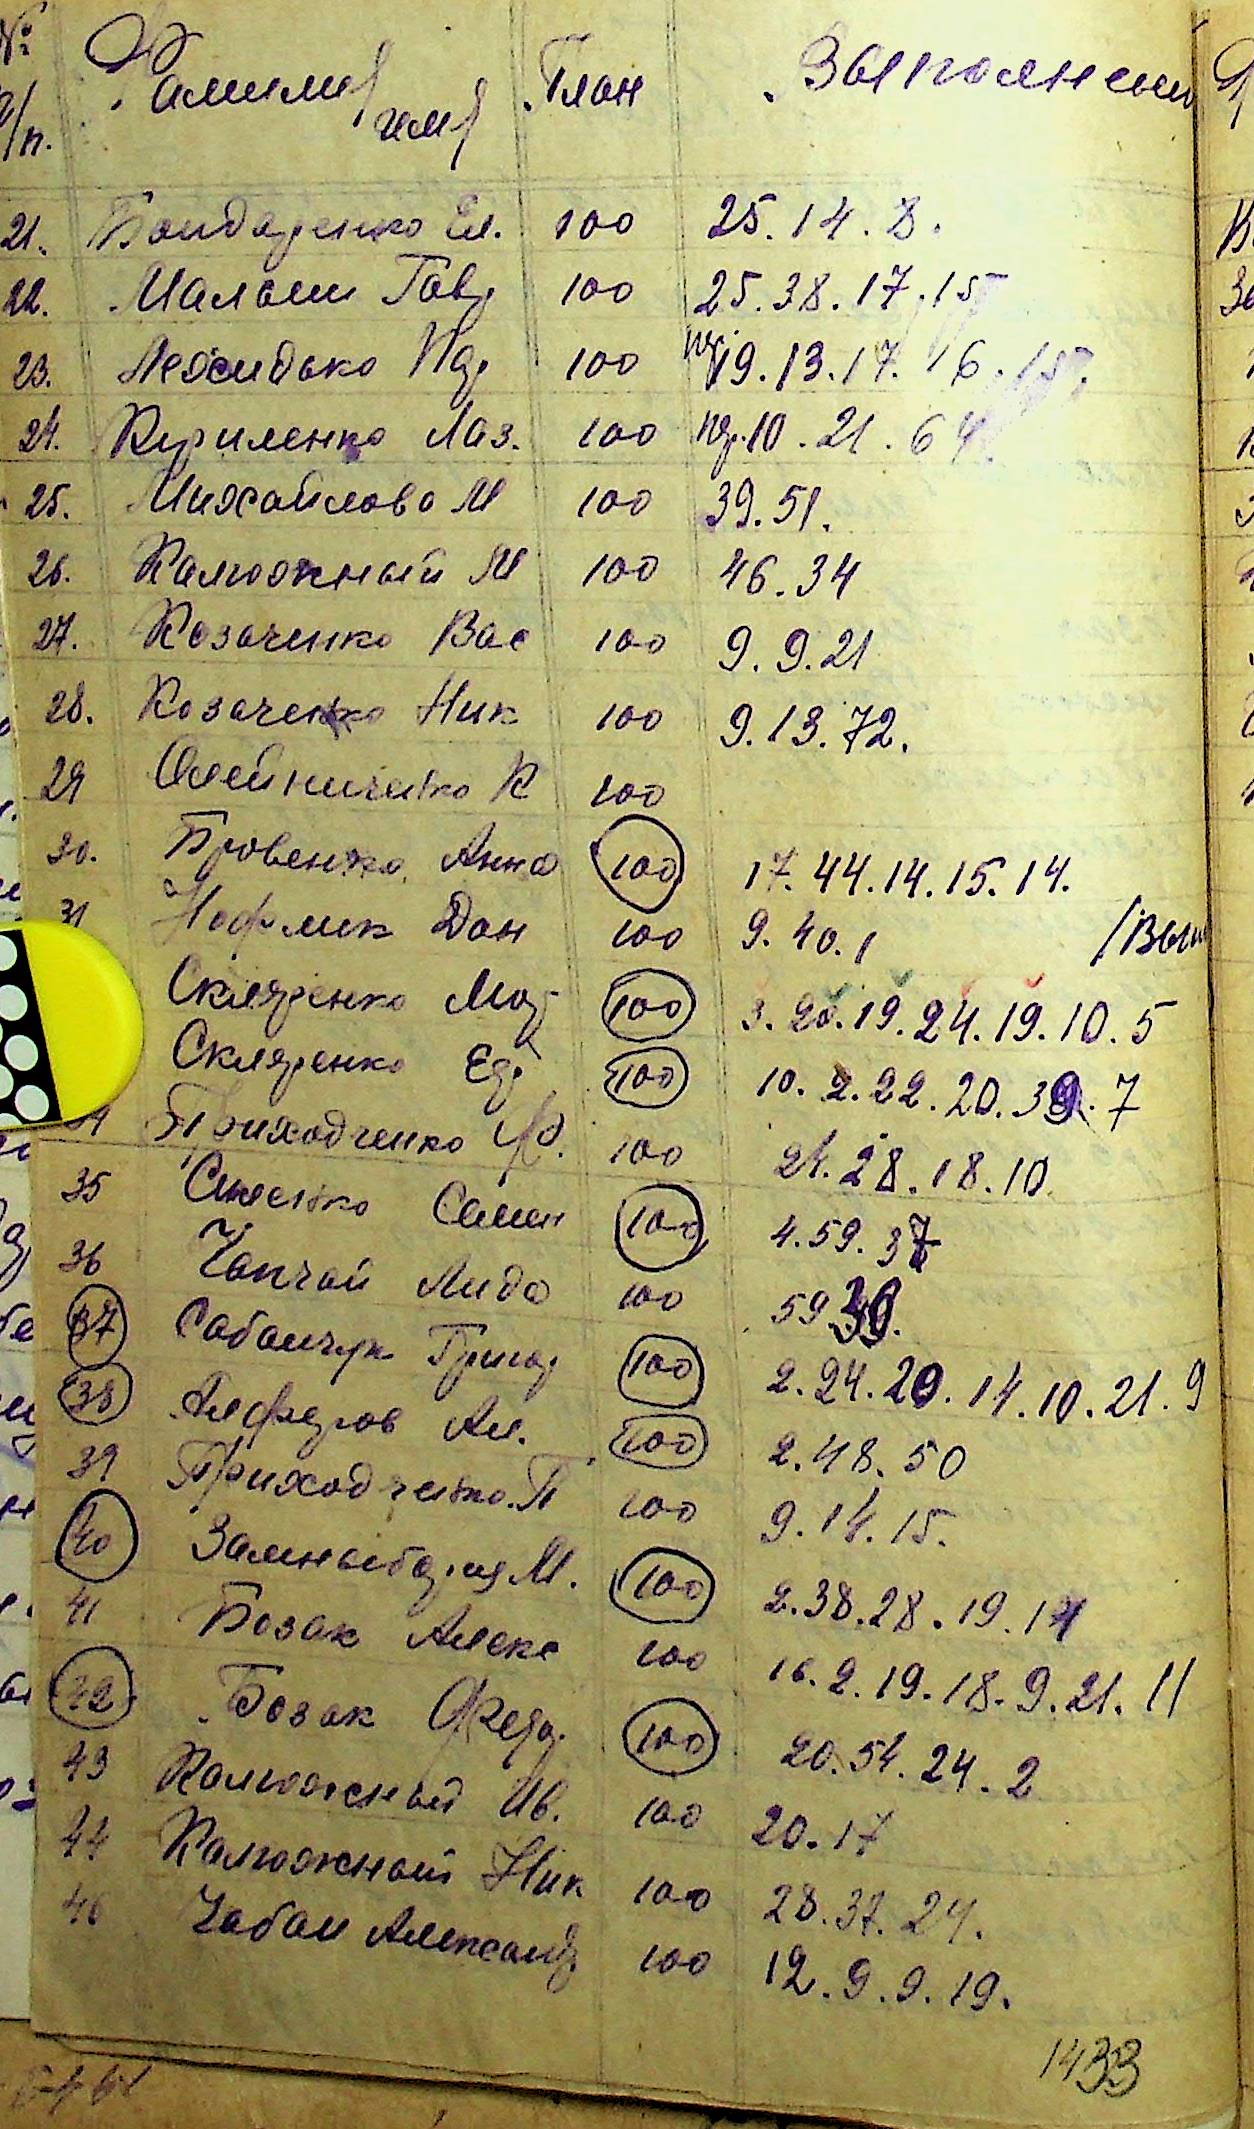 № Фамилия План Выполнение
п/п. имя
21. Бондаренко Ел. 100 25.14.8.
22. Малыш Гавр 100 25.38.17.15
23. 100 19.13.17.16.15.
24. Кириленко Лаз. 100 10.21.64
25. Михайлова М 100 39.51.
26. Калюжный М 100 46.34
27. Козаченко Вас 100 9.9.21
28. Козаченко Ник 100 9.13.72.
29 Олейниченко К 100
30. Бровенко Анна 100 17.44.14.15.14.
31 Дан 100 9.40.1
Скляренко Мар 100 3.20.19.24.19.10.5
Скляренко Ед 100 10.2.22.20.39.7
34 Приходченко Ф. 100 24.28.18.10
35 Синенко Семен 100 4.59.37
36 Чапчай Лида 100 59.39.
37 Сабанчук Григор 100 2.24.20.14.10.21.9
38 Алферов Ал. 100 2.48.50
39 Приходченко П 100 9.14.15.
40 М. 100 2.38.28.19.14
41 Бозак Алекс 100 16.2.19.18.9.21.11
42 Бозак Федор. 100 20.54.24.2
43 Калюжный Ив. 100 20.17
44 Калюжный Ник 100 28.37.24.
46 Чабан Александ 100 12.9.9.19.
1433